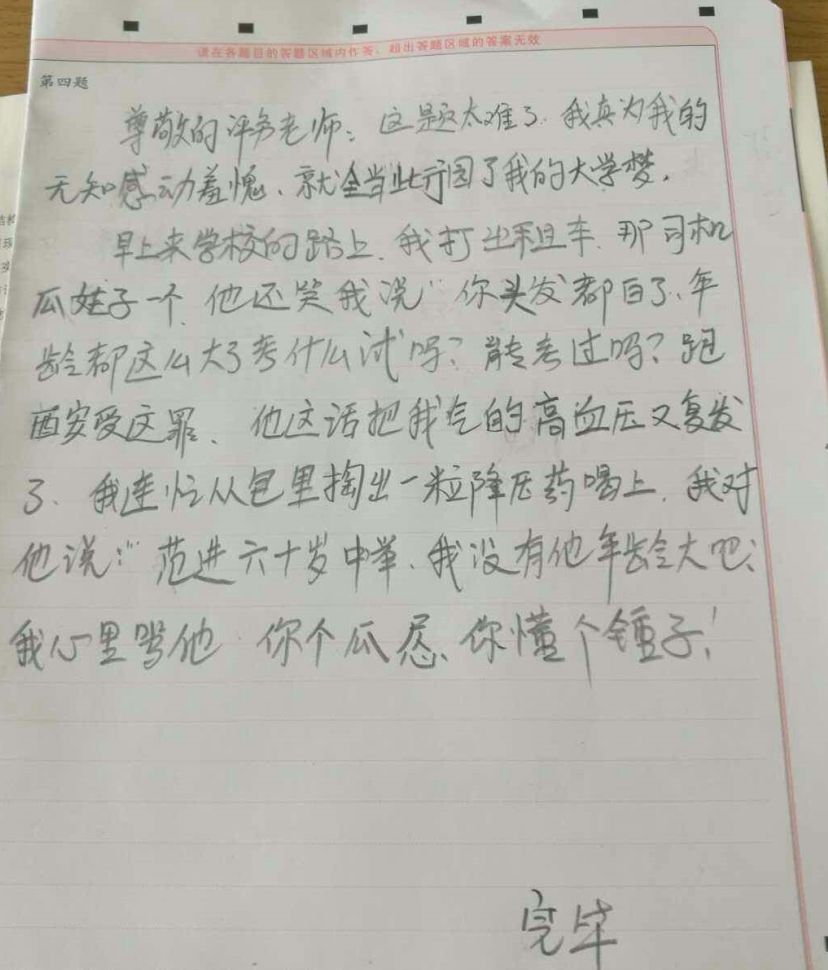 请在各题目的答题区域内作答，超出答题区域的答案无效
第四题
尊敬的评务老师：这题太难了、我真为我的
无知感动羞愧、就全当此行圆了我的大学梦。
早上来学校的路上、我打出租车、那司机
瓜娃子一个、他还笑我说“你头发都白了、年
龄都这么大了考什么试吗？能考过吗？跑
西安受这罪、他这话把我气的高血压又复发
了、我连忙从包里掏出一粒降压药喝上、我对
他说：“范进六十岁中举、我没有他年龄大吧；
我心里骂他、你个瓜怂、你懂个锤子！
完毕